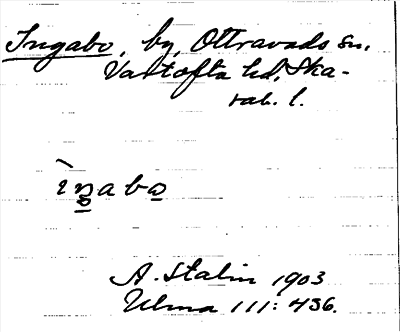 Ingabo, by, Ottravads sn,
Vartofta hd, Ska-
rab. l.
A. Stalin 1903
Ulma 111: 436.